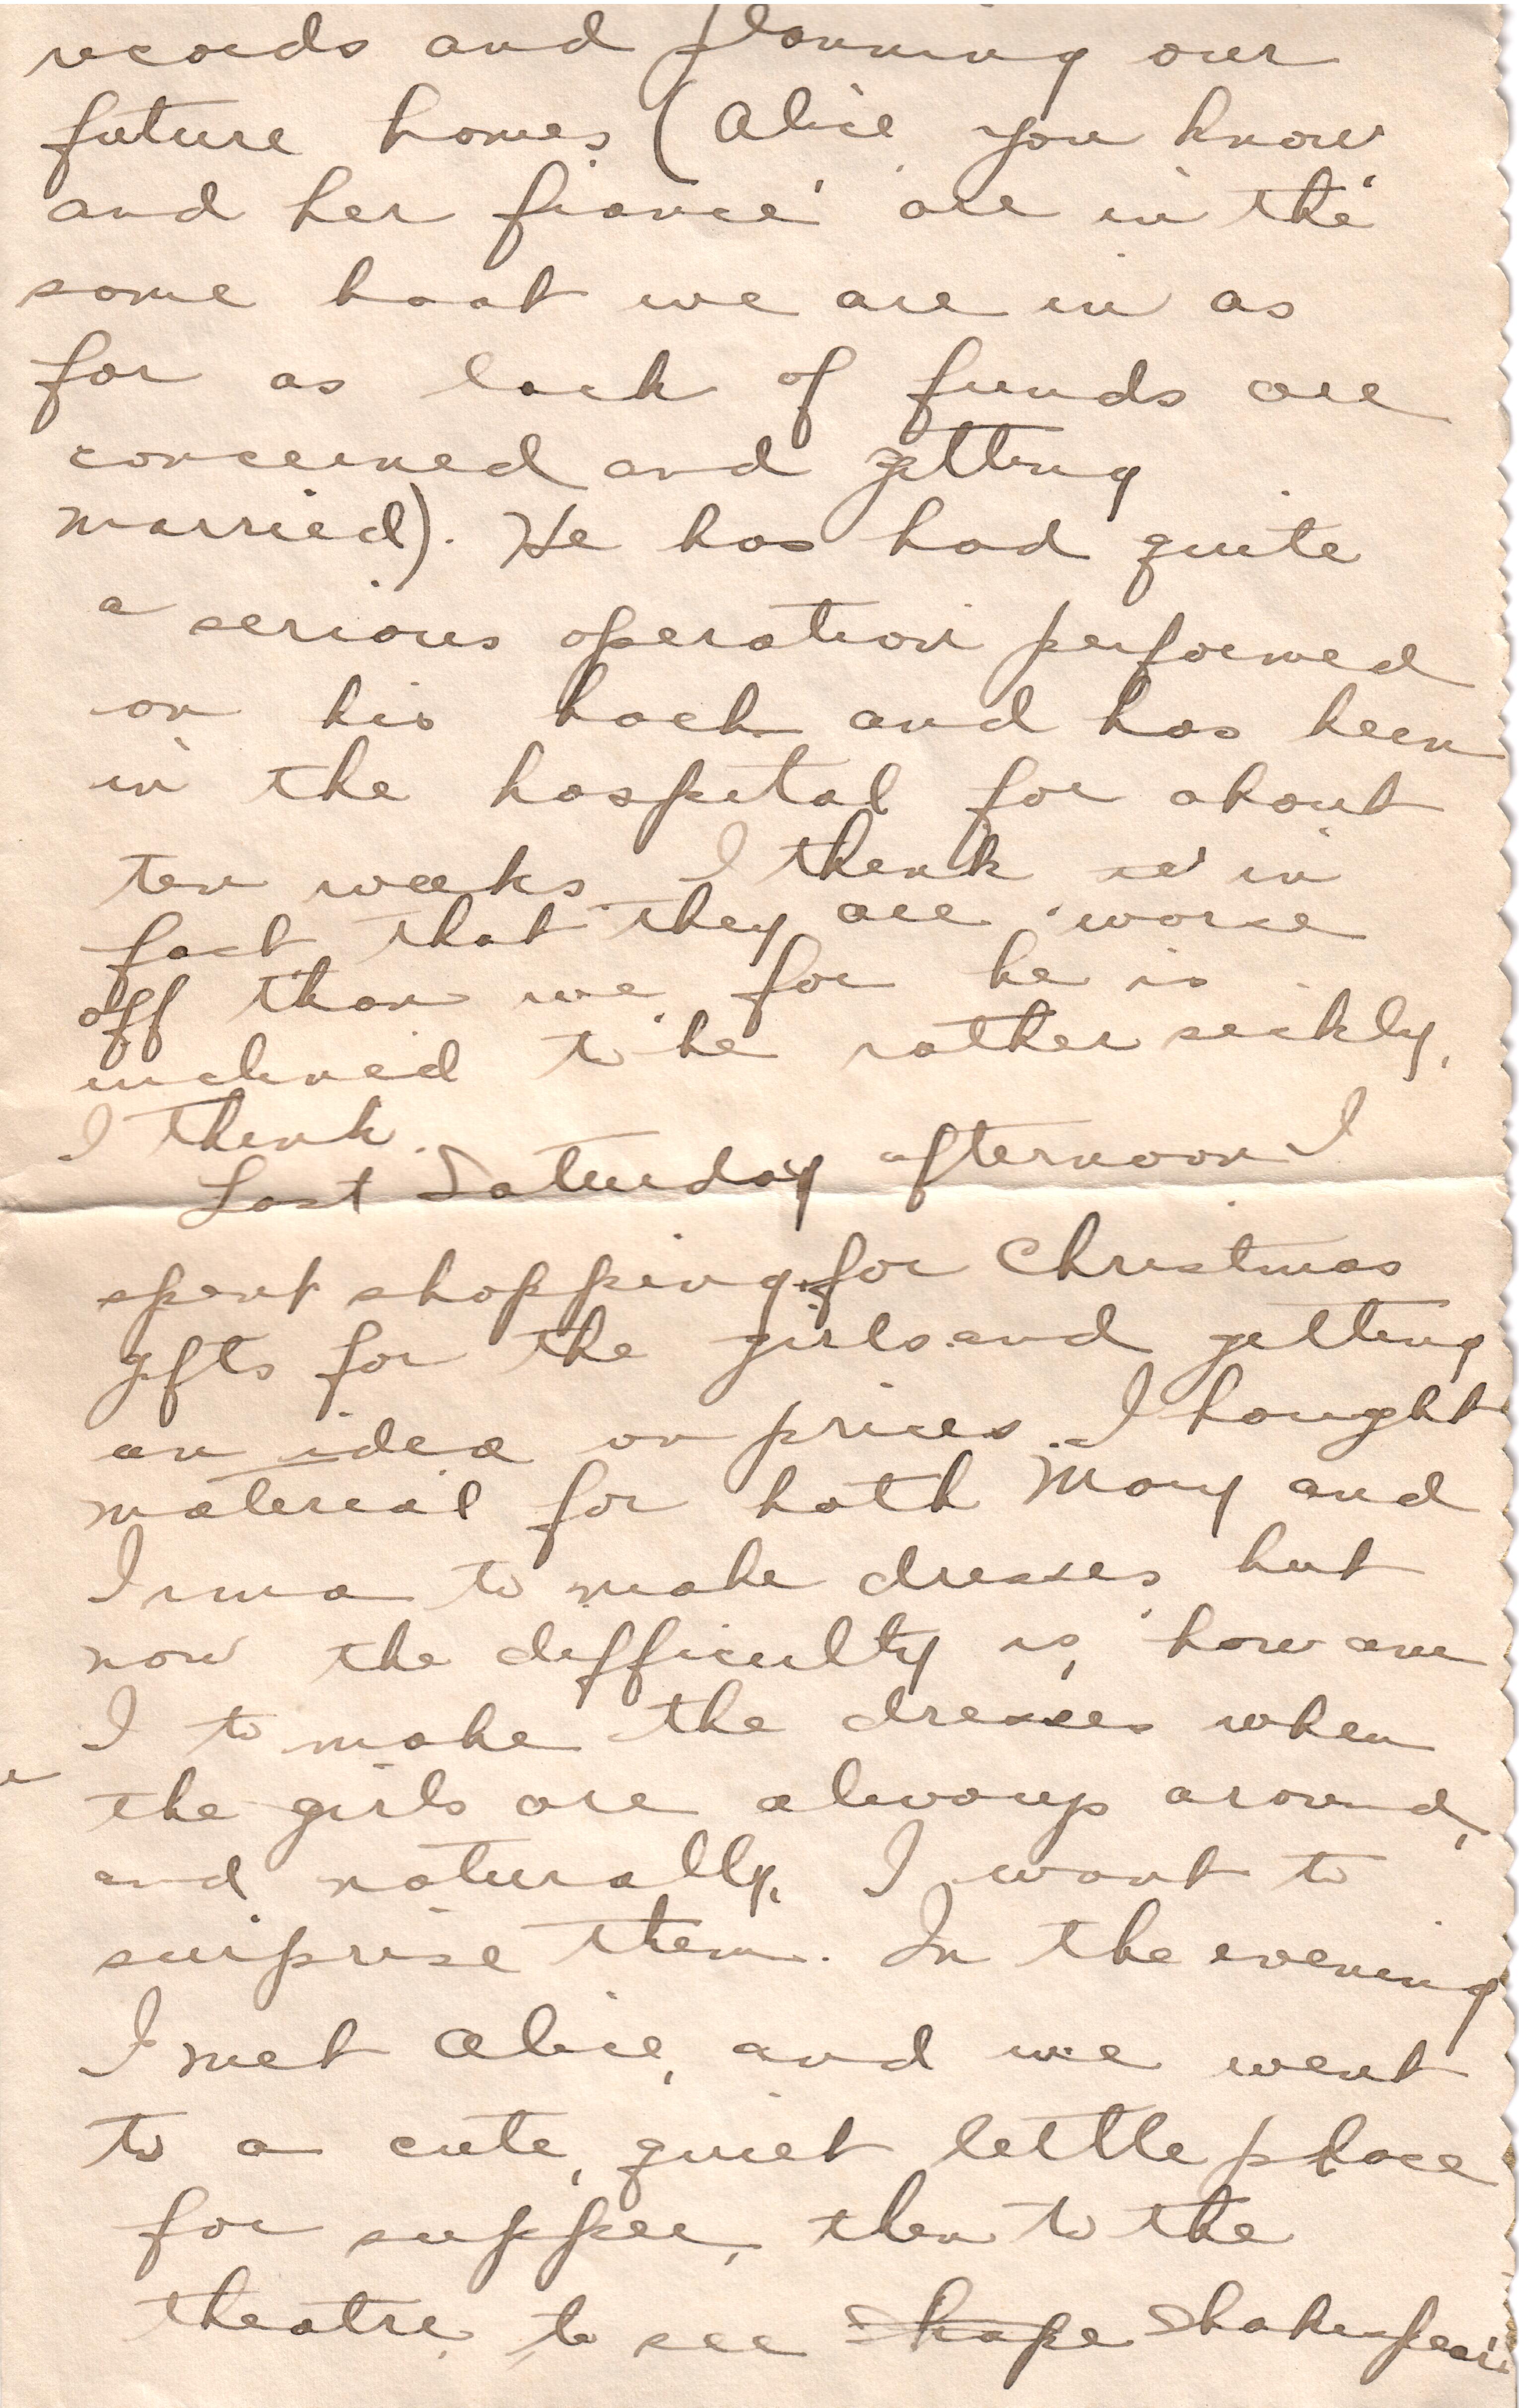 records and planning our
future homes (Alice, you know
and her fiancé, are in the
same boat we are in as
far as lack of funds are
concerned and getting
married). He has had quite
a serious operation performed
on his back and has been
in the hospital for about
ten weeks. I think in
fact that they are worse
off than we, for he is
inclined to be rather sickly,
I think.
Last Saturday afternoon I
spent shopping for Christmas
gifts for the girls and getting
an idea on prices. I bought
material for both Mary and
Irma to make dresses, but
now the difficulty is, how am
I to make the dresses when
the girls are always around,
and naturally, I want to
surprise them. In the evening
I met Alice, and we went
to a cute, quiet little place
for supper, then to the
theatre, to see Shape Shakespear